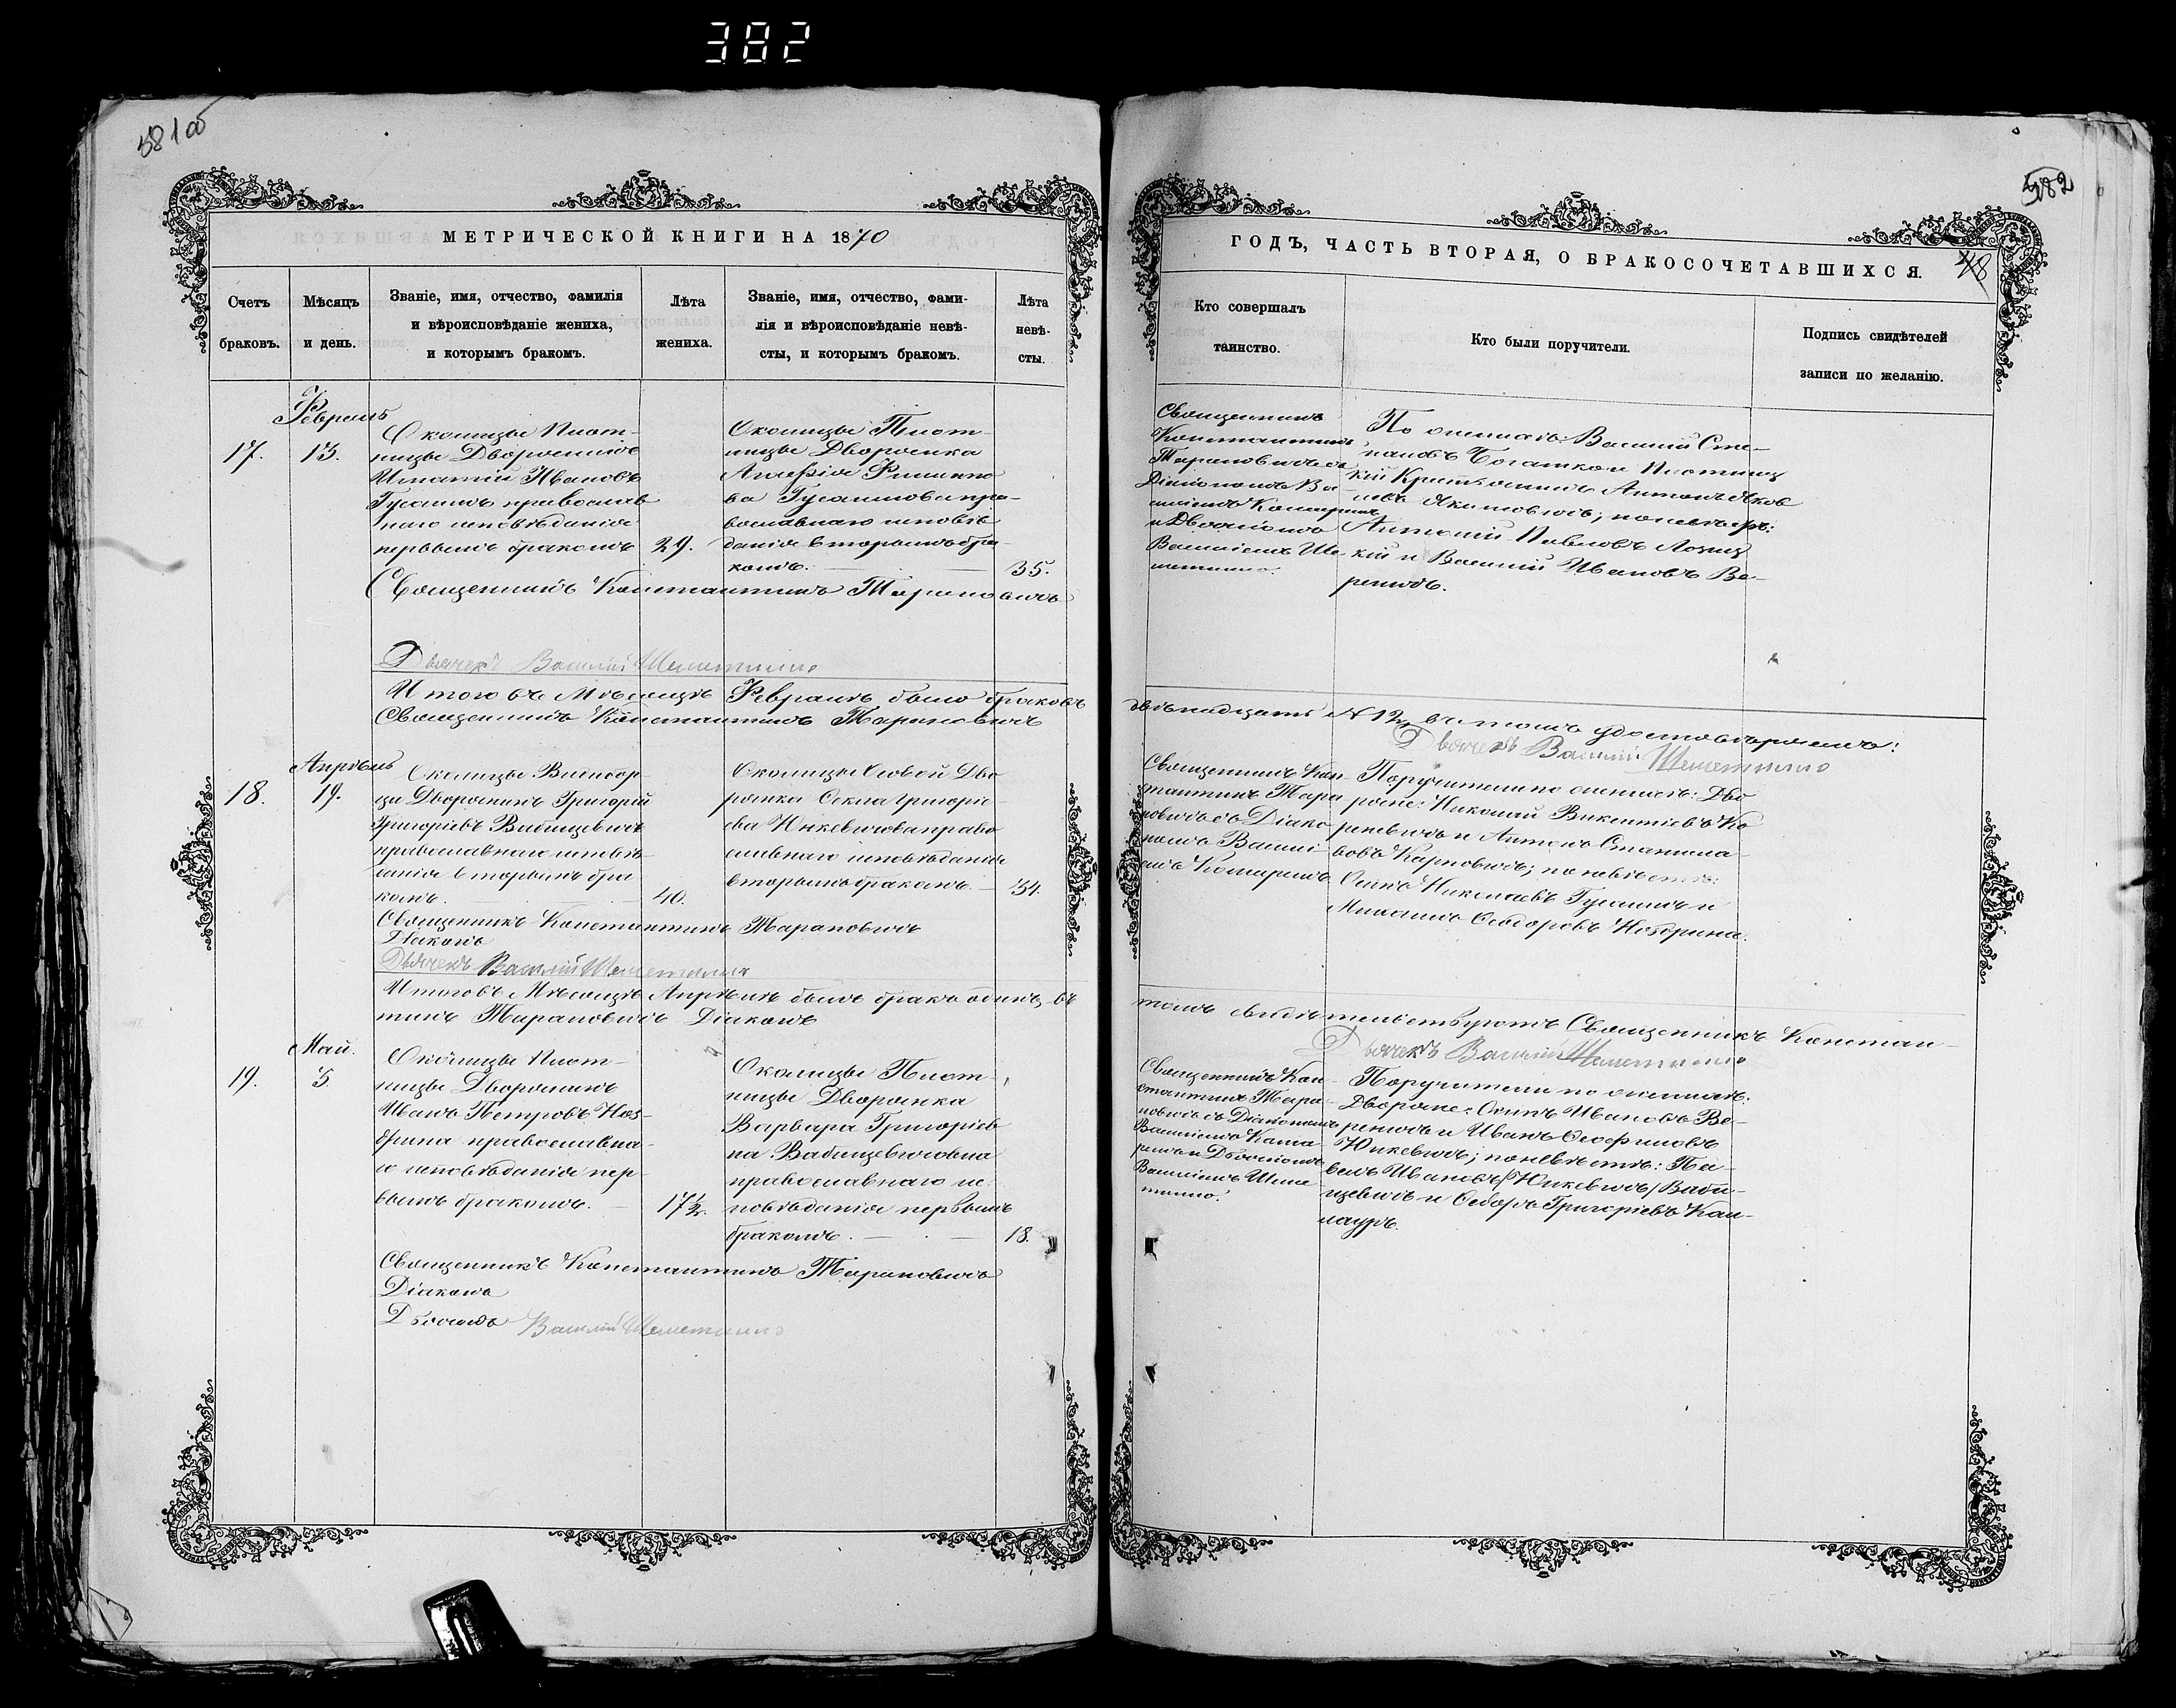 382
581 об
582
48
МЕТРИЧЕСКОЙ КНИГИ НА 1870
Счетъ
браковъ.
Мѣсяцъ
и день.
Званіе, имя, отчество, фамилія
и вѣроисповѣданіе жениха,
и которымъ бракомъ.
Лѣта
жениха.
Званіе, имя, отчество, фами-
лія и вѣроисповѣданіе невѣ-
сты, и которымъ бракомъ.
Лѣта
невѣ-
сты.
Февраль
17.
13.
Околицы Плот-
ницы Дворянинъ
Игнатій Ивановъ
Гусаимъ православ
наго исповѣданія
первымъ бракомъ
29.
Околицы Плот-
ницы Дворянка
Гусаимова пра-
вославнаго исповѣ
данія вторымъ бра-
комъ.
35.
Священникъ Константинъ Тарановичъ
Дьячекъ Василій
Итого въ Мѣсяцѣ Февралѣ было браковъ
Священникъ Константинъ Тарановичъ
Апрѣль
18.
19.
Околицы
Дворянинъ Григорій
Григоріевъ Вабищевичъ
православнаго исповѣ-
данія вторымъ бра
комъ.
40.
Околицы Дво
рянка Фекла Григоріе-
ва Юнкевичова право
славнаго исповѣданія
вторымъ бракомъ.
34.
Священникъ Константинъ Тарановичъ
Діаконъ
Дьячекъ Василій
Итого въ Мѣсяцѣ Апрѣлѣ былъ бракъ одинъ, въ
тинъ Тарановичъ Діаконъ
Май.
19.
3.
Околицы Плот-
ницы Дворянинъ
Иванъ Петровъ Ноз-
дрина православна-
го исповѣданія пер-
вымъ бракомъ.
17½.
Околицы Плот-
ницы Дворянка
Варвара Григоріев
на Вабищевичовна
православнаго ис-
повѣданія первымъ
бракомъ.
18.
Священникъ Константинъ Тарановичъ
Діаконъ
Дьячекъ Василій
ГОДЪ, ЧАСТЬ ВТОРАЯ, О БРАКОСОЧЕТАВШИХСЯ.
Кто совершалъ
таинство.
Кто были поручители.
Подпись свидѣтелей
записи по желанію.
Священникъ
Константинъ
Тарановичъ съ
Діакономъ Ва-
силіемъ
и Дьячкомъ
Василіемъ
По женихѣ: Василій Сте-
пановъ
Антонъ Яков
левъ Якимовичъ; по невѣстѣ:
Антоній Павловъ
кій и Василій Ивановъ Ве-
реничъ.
двѣнадцать № 12, въ томъ удостовѣряемъ:
Дьячекъ Василій
Священникъ Кон-
стантинъ Тара
новичъ съ Діако
номъ Василі
емъ
Поручители по женихѣ: Дво
ряне: Николай Викентіевъ Ко
реневичъ и Антонъ Станисла-
вовъ Карповичъ; по невѣстѣ:
Осипъ Николаевъ Гусаимъ и
Михаилъ Ѳеодоровъ Ноздрина.
томъ свидѣтельствуютъ Священникъ Констан-
Дьячекъ Василій
Священникъ Кон-
стантинъ Тара-
новичъ съ Діакономъ
Василіемъ
и Дьячкомъ
Василіемъ
Поручители по женихѣ:
Дворяне: Осипъ Ивановъ Ве-
реничъ и Иванъ
Юнкевичъ; по невѣстѣ: Па-
велъ Ивановъ (Юнкевичъ) Ваби-
щевичъ и Ѳедоръ Григоріевъ Кан-